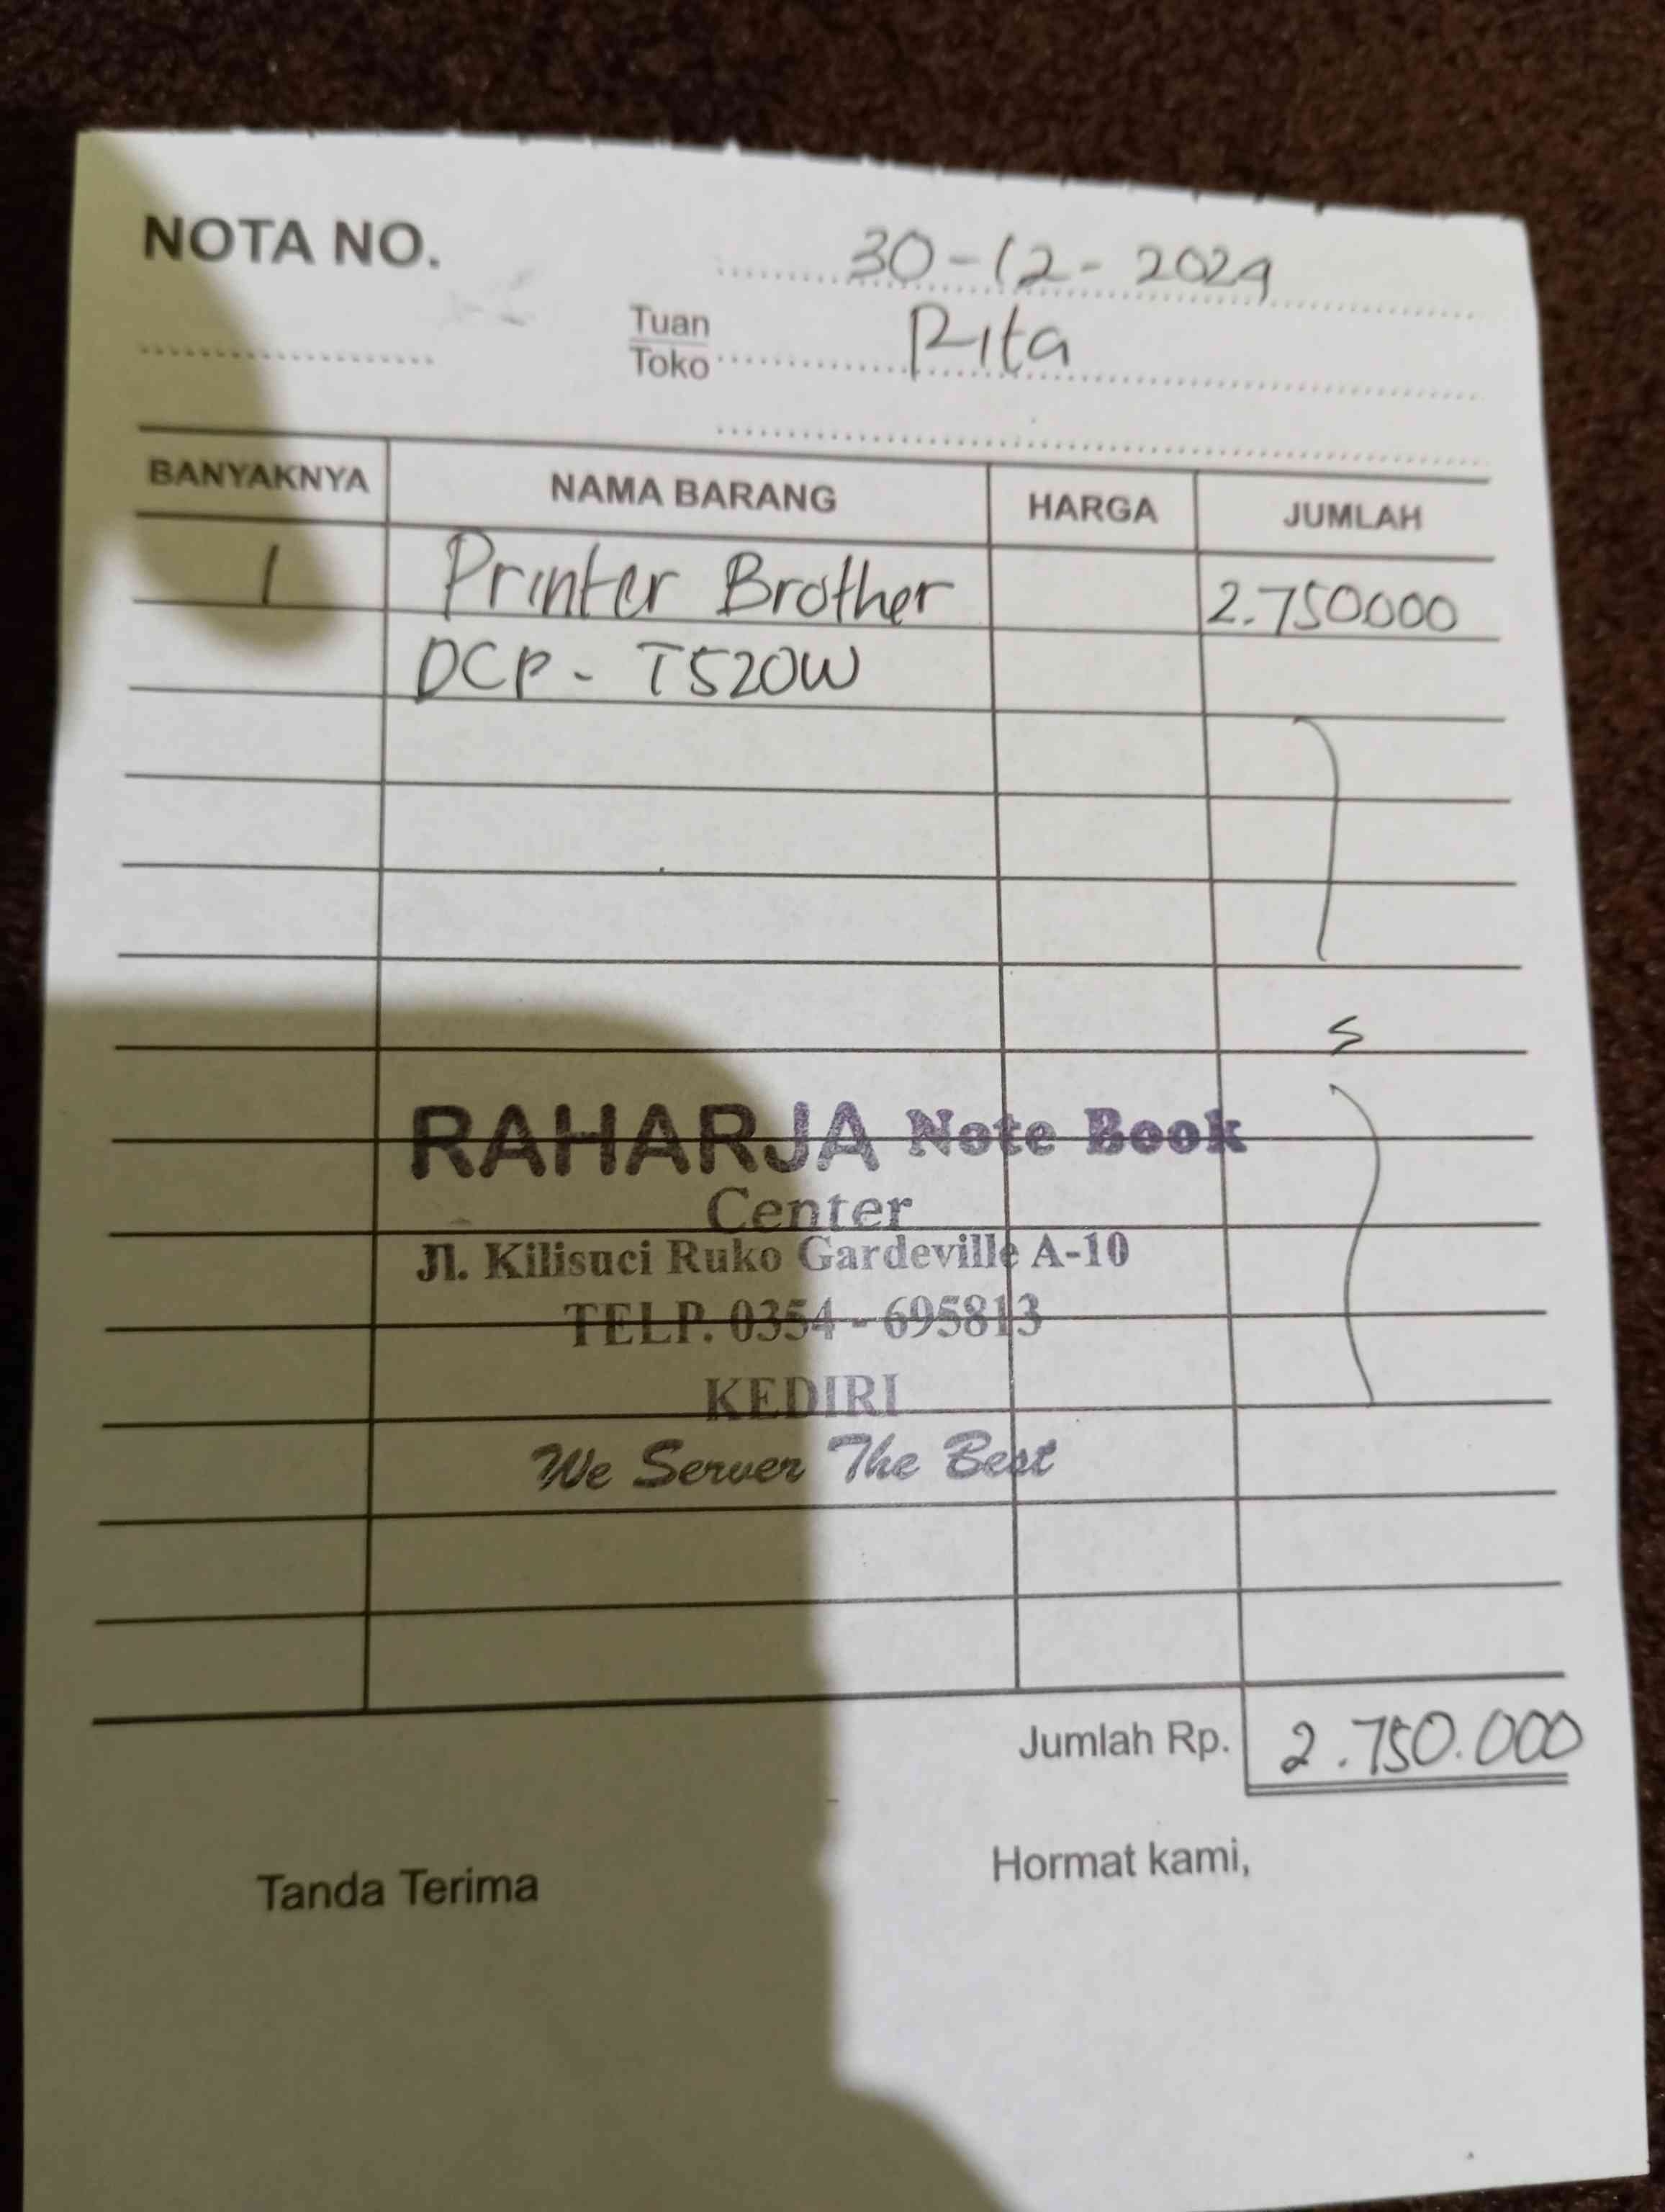 NOTA NO.
30-12-2024
Tuan
Toko
Rita
BANYAKNYA NAMA BARANG HARGA JUMLAH
1 Printer Brother 2.750000
DCP - T520W
RAHARJA Note Book
Center
Jl. Kilisuci Ruko Gardeville A-10
TELP. 0354 - 695813
KEDIRI
We Server The Best
Jumlah Rp. 2.750.000
Tanda Terima Hormat kami,